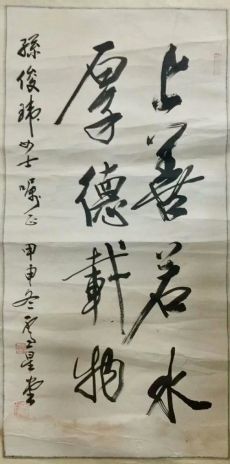 上善若水
厚德載物
孫俊瑋女士囑正 甲申冬 星堂